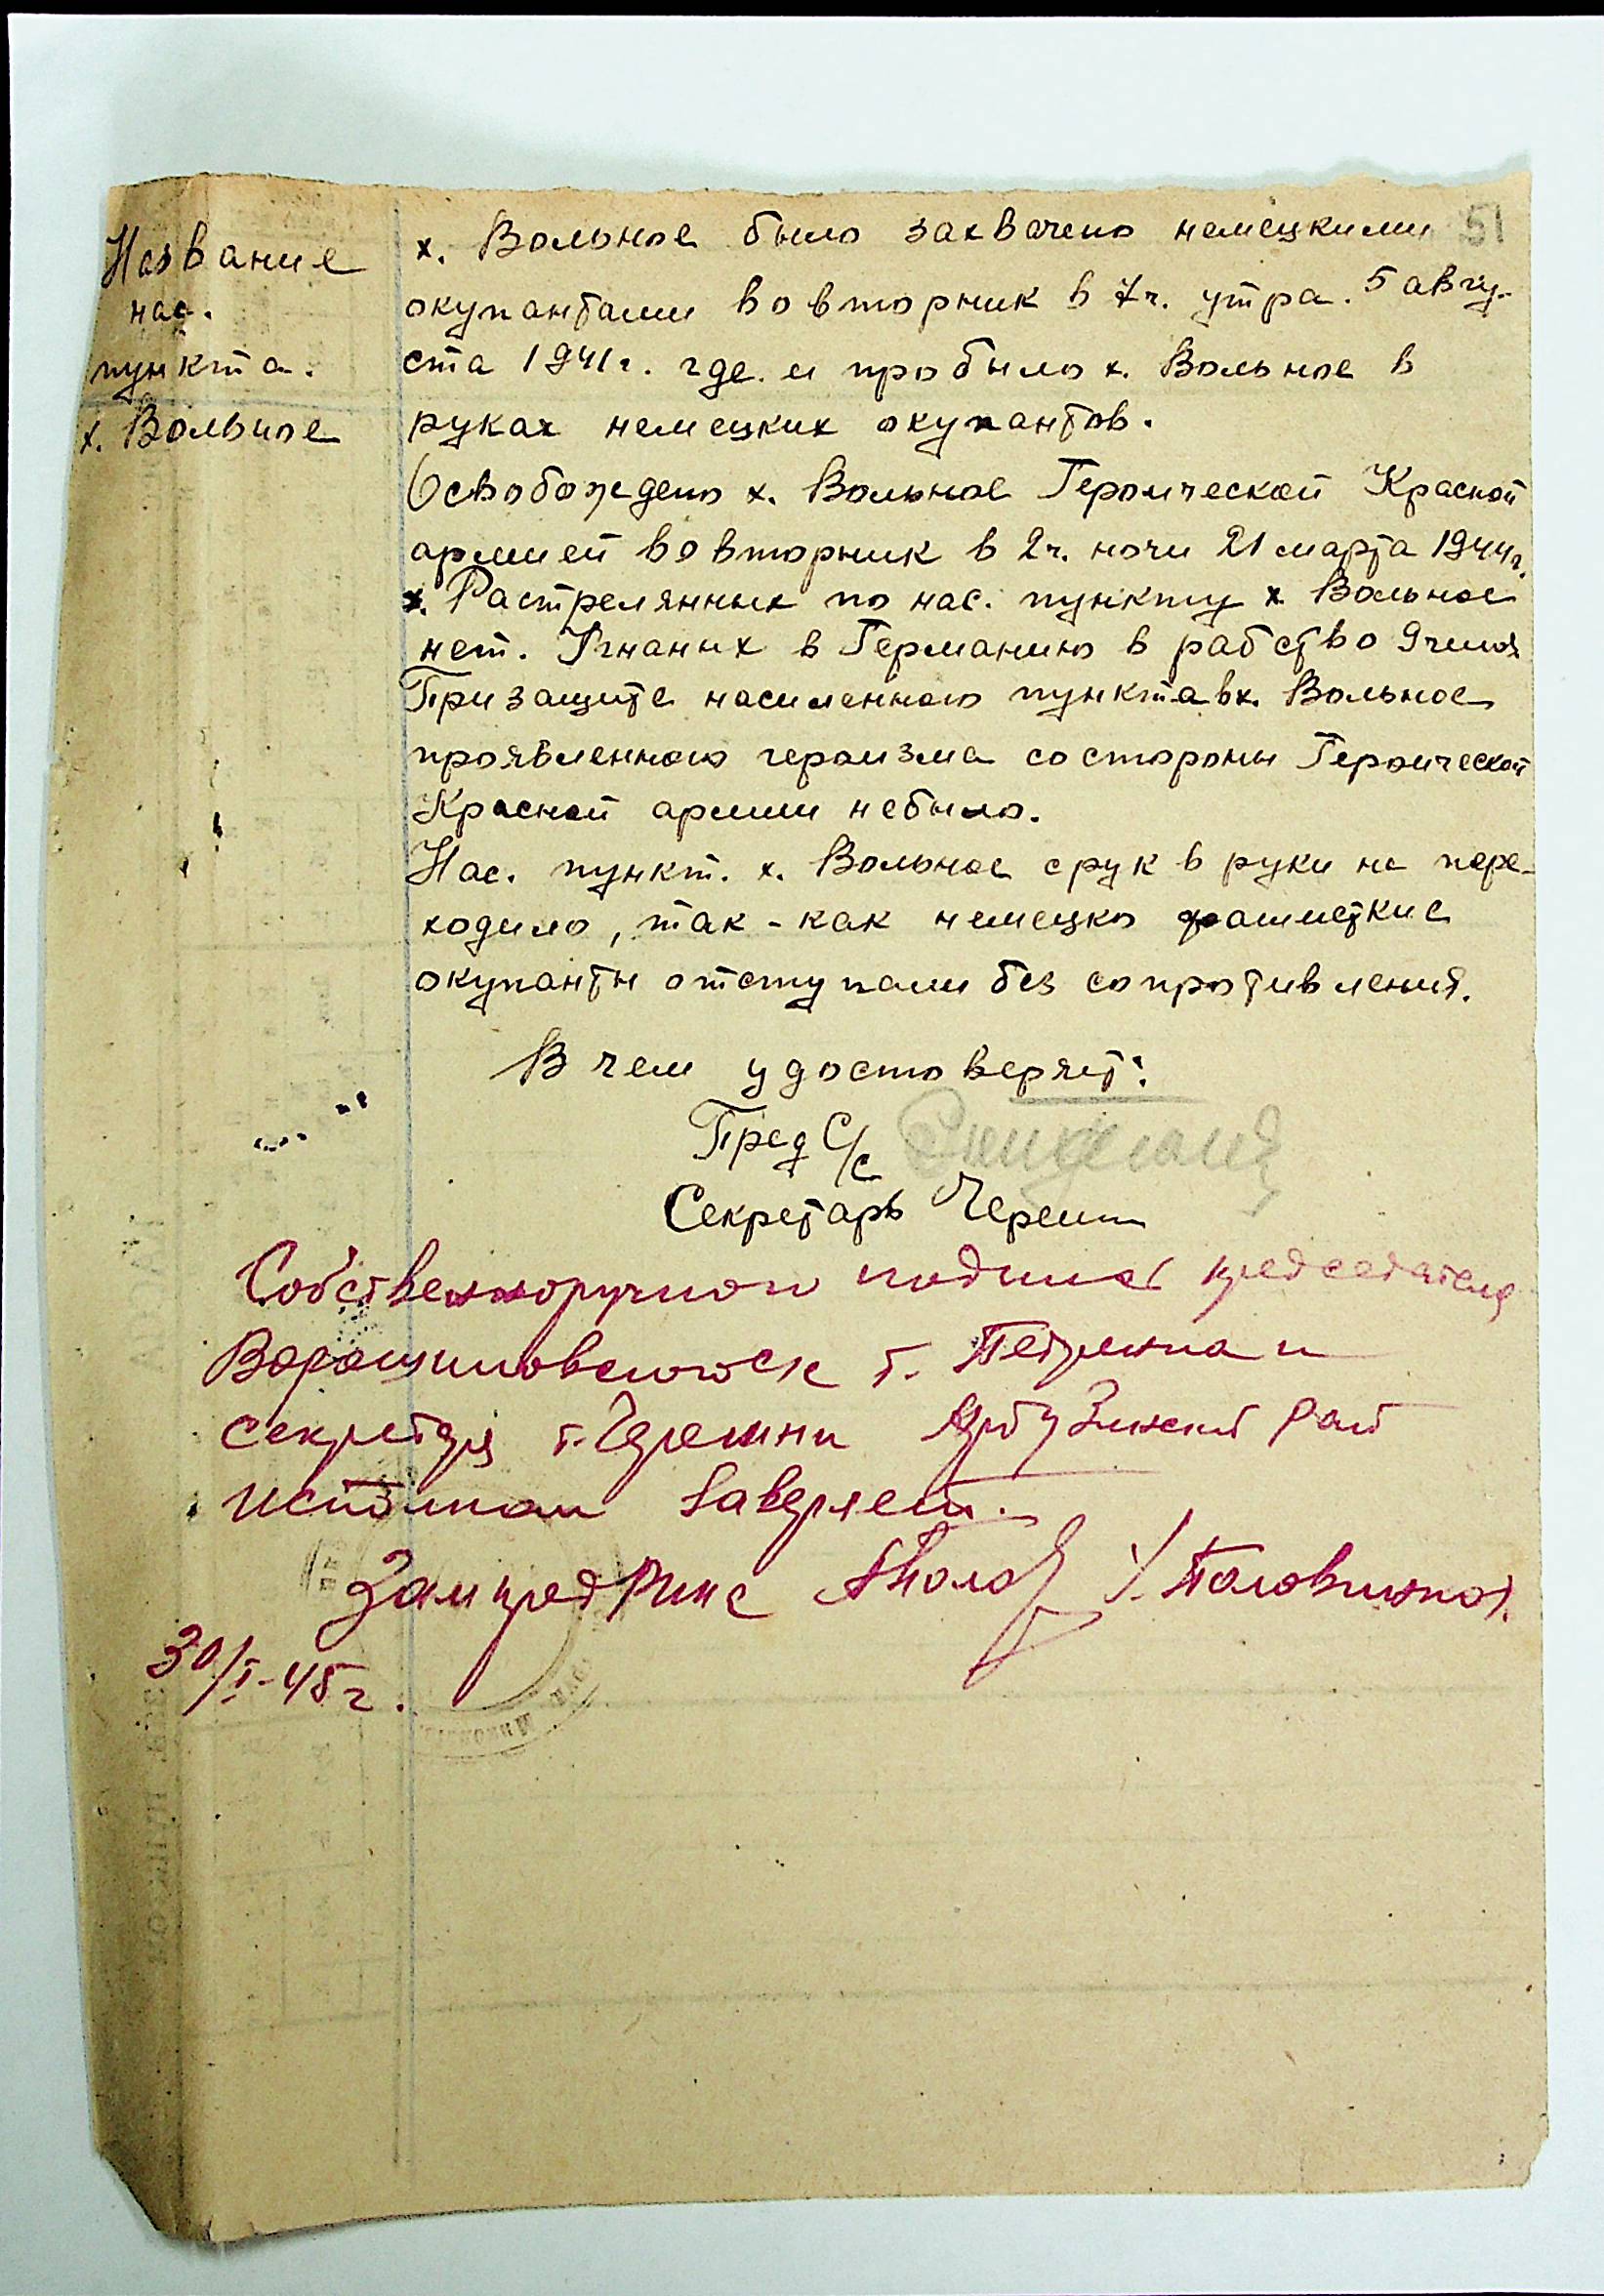 51
Название
нас.
пункта.
х. Вольное
х. Вольное было захвачено немецкими
окупантами во вторник в 7ч. утра. 5 авгу-
ста 1941г. где и пробыло х. Вольное в
руках немецких окупантов.
Освобождено х. Вольное Героической Красной
армией во вторник в 2ч. ночи 21 марта 1944г.
х. Растрелянных по нас. пункту х Вольное
нет. Угнаных в Германию в рабство 9 чел.
При защите населенного пункта в х. Вольное
проявленного героизма со стороны Героической
Красной армии небыло.
Нас. пункт. х. Вольное с рук в руки не пере-
ходило, так-как немецко фашисткие
окупанты отступали без сопротивления.
В чем удостоверяет:
Пред С/с
Секретарь Черешн
Собственноручной подписи председателя
Ворошиловского с/с т. Петренка и
секретаря т. Черешни Арбузинский рай
исполком заверяет.
Зам пред РИКа /. Половинкот.
30/I-45 г.